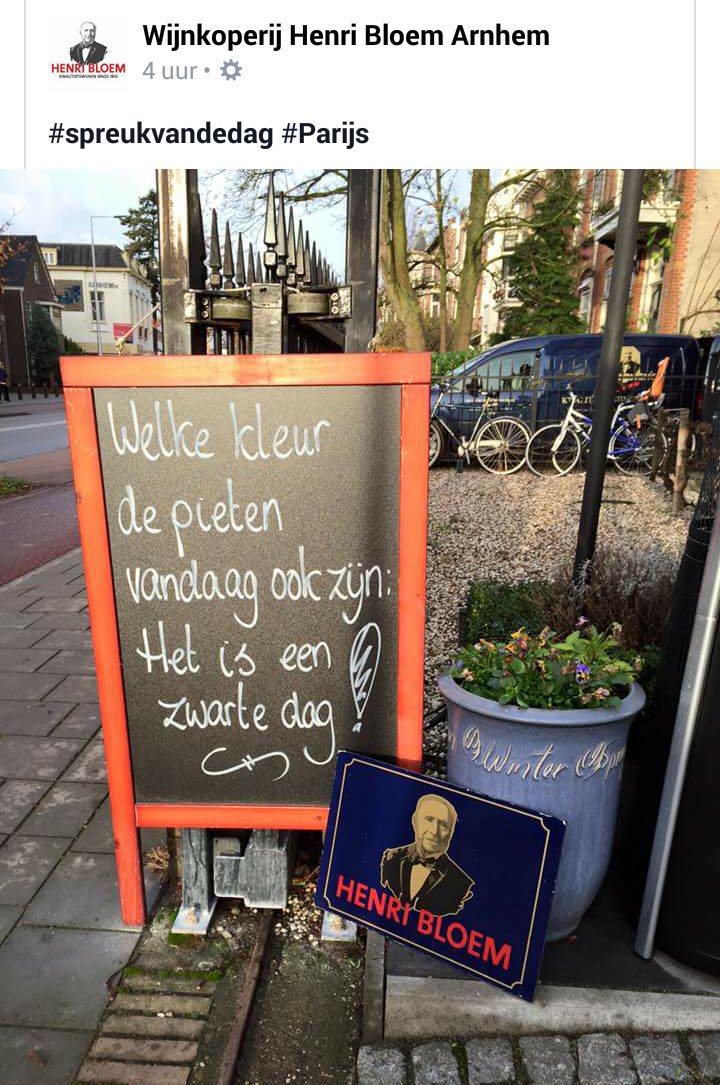 Wijnkoperij Henri Bloem Arnhem
HENRI BLOEM
4 uur
#spreukvandedag #Parijs
ARNHEM
Welke kleur
de pieten
vandaag ook zijn:
Het is een
zwarte dag!
Winter
HENRI BLOEM